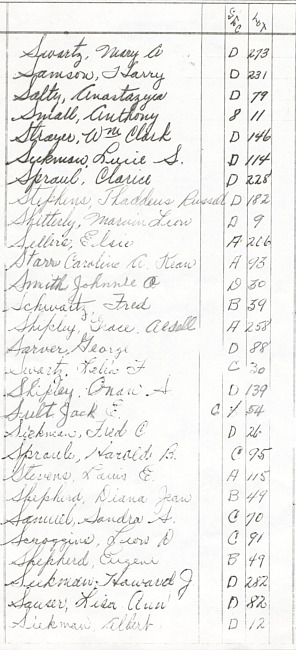 Sec Lot
Swartz, Mary A D 273
Samson, Harry D 231
Salty, Anastazyia D 79
Small, Anthony 8 11
Strayer, Wm Clark D 146
Sickman, Lucie S. D 114
Sproul, Clarice D 228
Stephens, Thaddeus Russell D 182
Shitterly, Marvin Leon D 9
Sellers, Elsie A 266
Starr Caroline A. Kean A 93
Smith Johnnie O D 30
Schwartz, Fred B 39
Shipley, Grace Aedell A 258
Sarver, George D 88
Swartz, F C 30
Shipley, Onan A D 139
Sult Jack E. C 54
Sickman, Fred C D 26
Sproule, Harold B. C 95
Stevens, Louis E. A 115
Shepherd, Diana Jean B 49
Samuel, Sandra S. C 70
Scroggins, Leon D C 91
Shepherd, Eugene B 49
Sickman, Howard J D 282
Sauer, Lisa Ann D 82
Sickman, Albert D 12